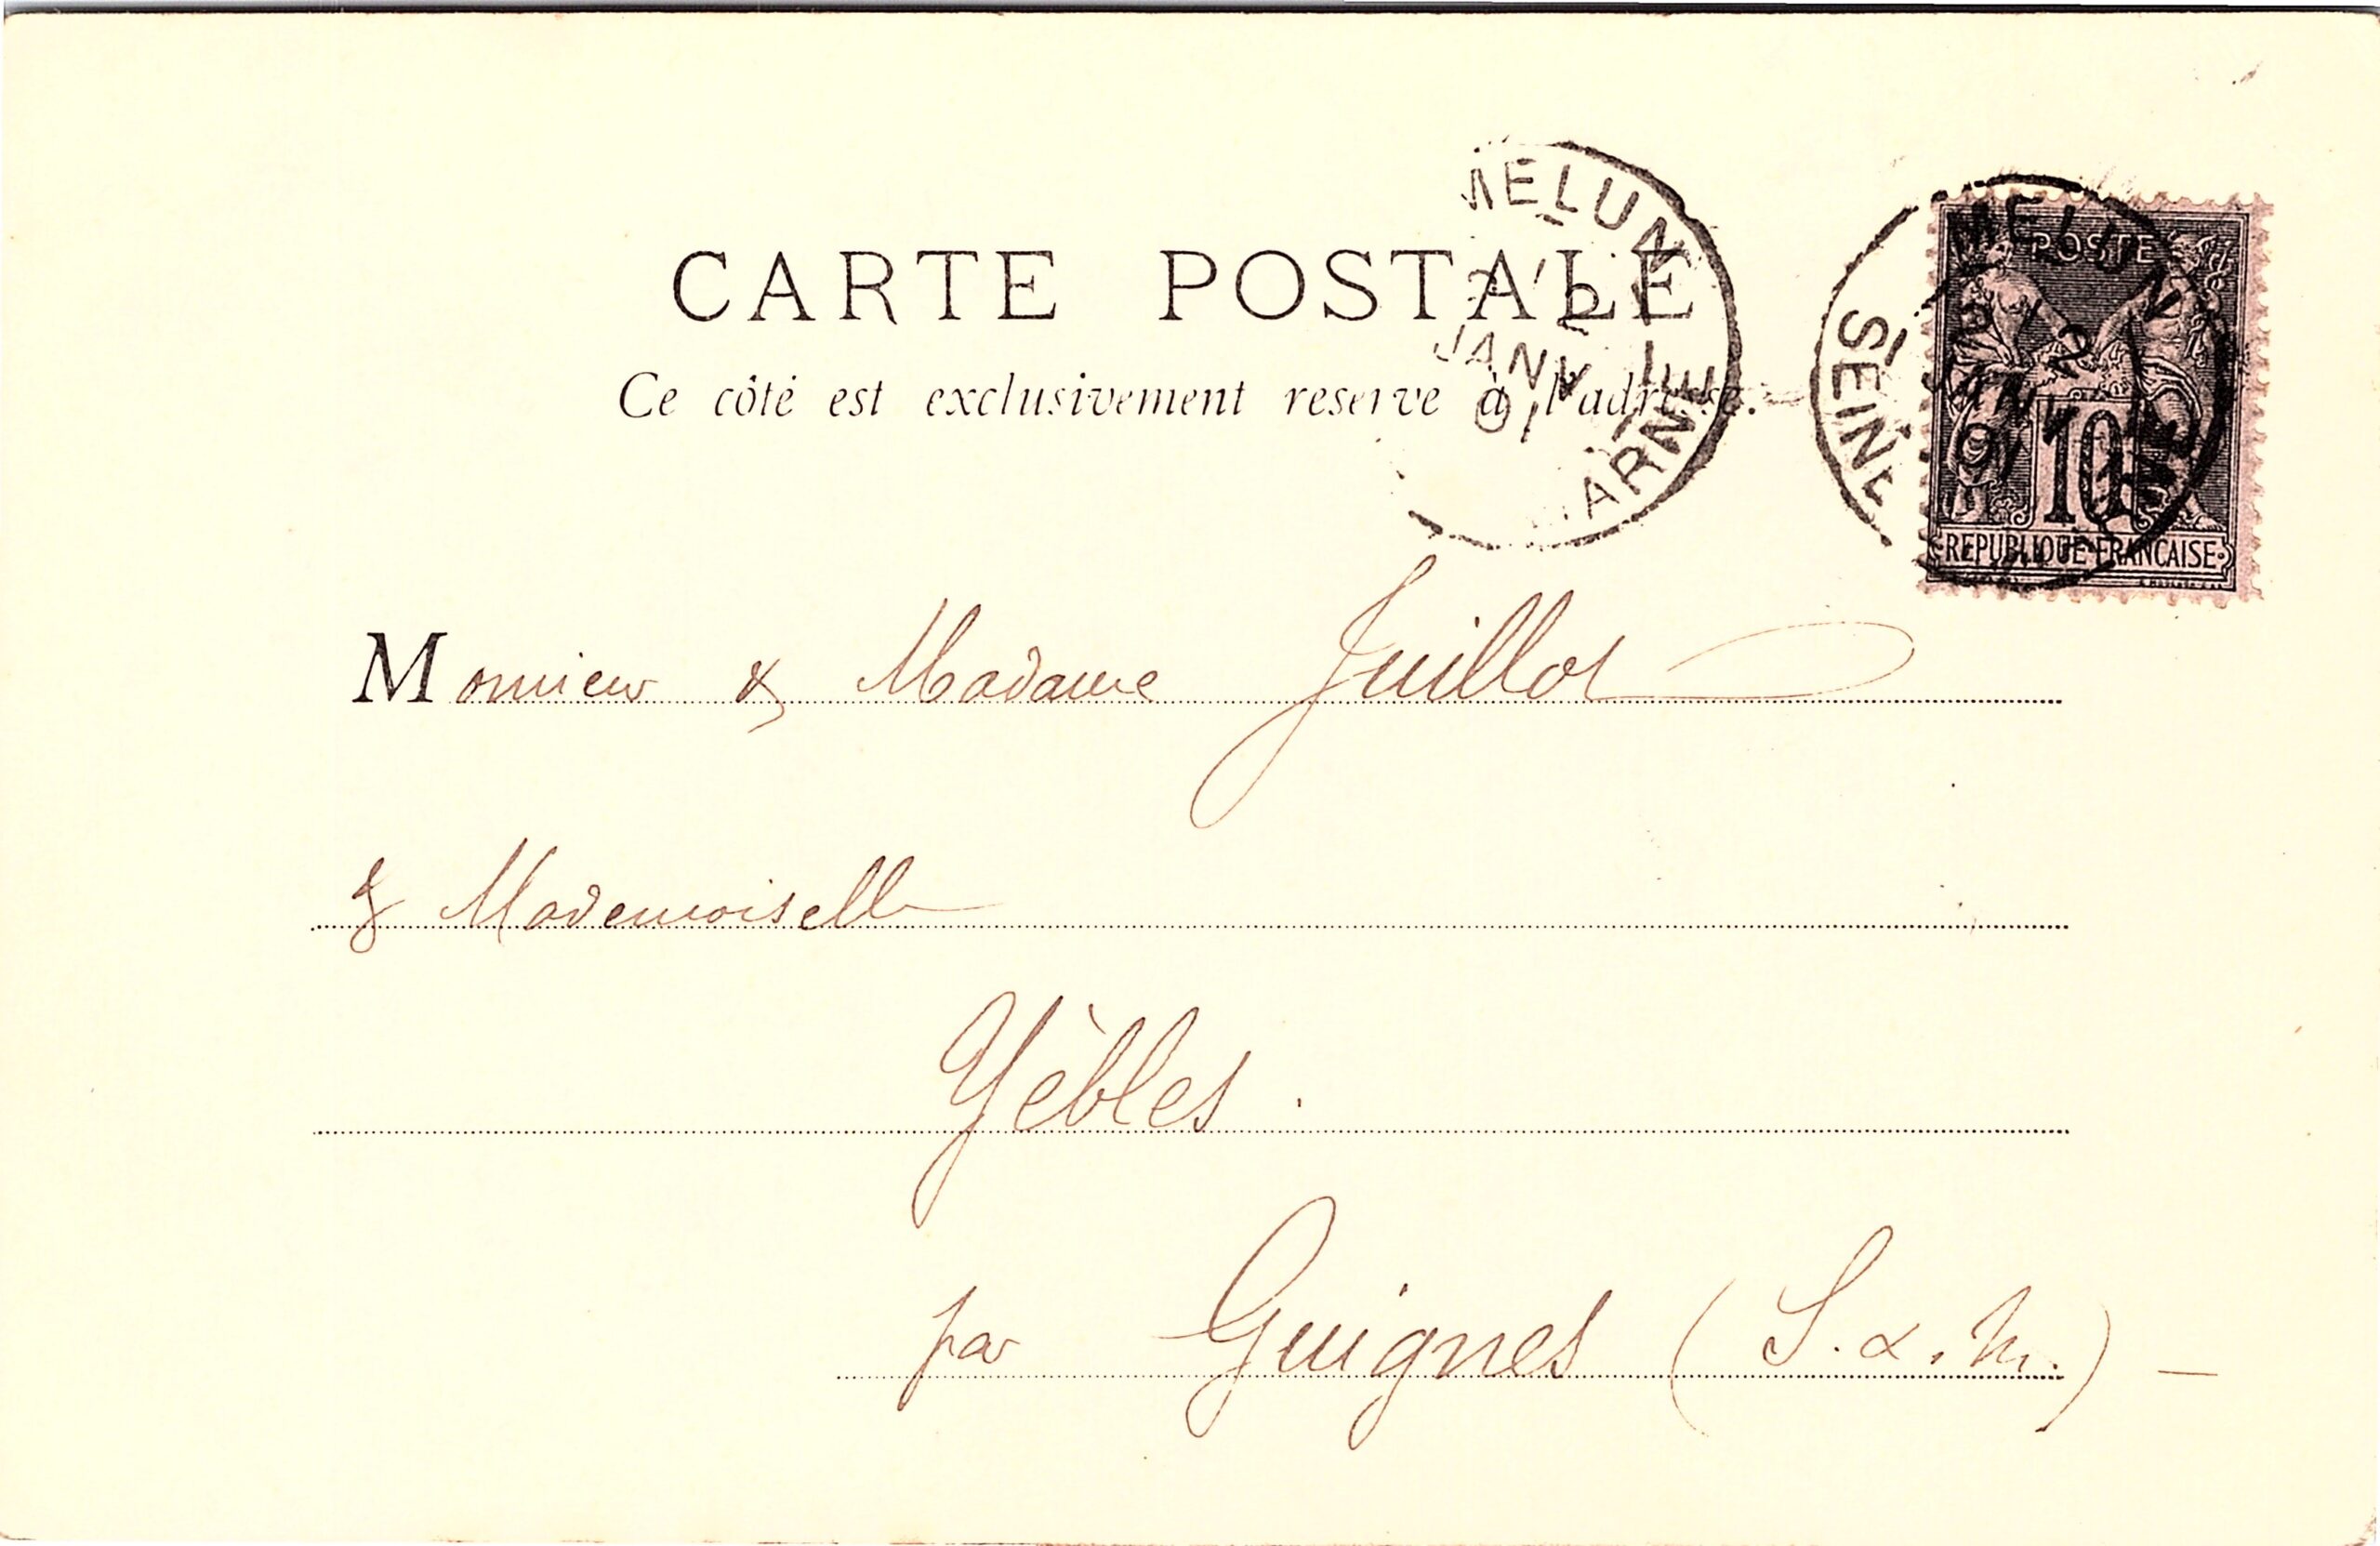 CARTE POSTALE
Ce côté est exclusivement reservé à l'adresse.
MELUN
JANV
01
MARNE
MELUN
SEINE
JANV
01
POSTE
10
REPUBLIQUE FRANCAISE
Monsieur & Madame Juillot
& Mademoiselle
Yèbles.
par Guignes (S. & . M.) —